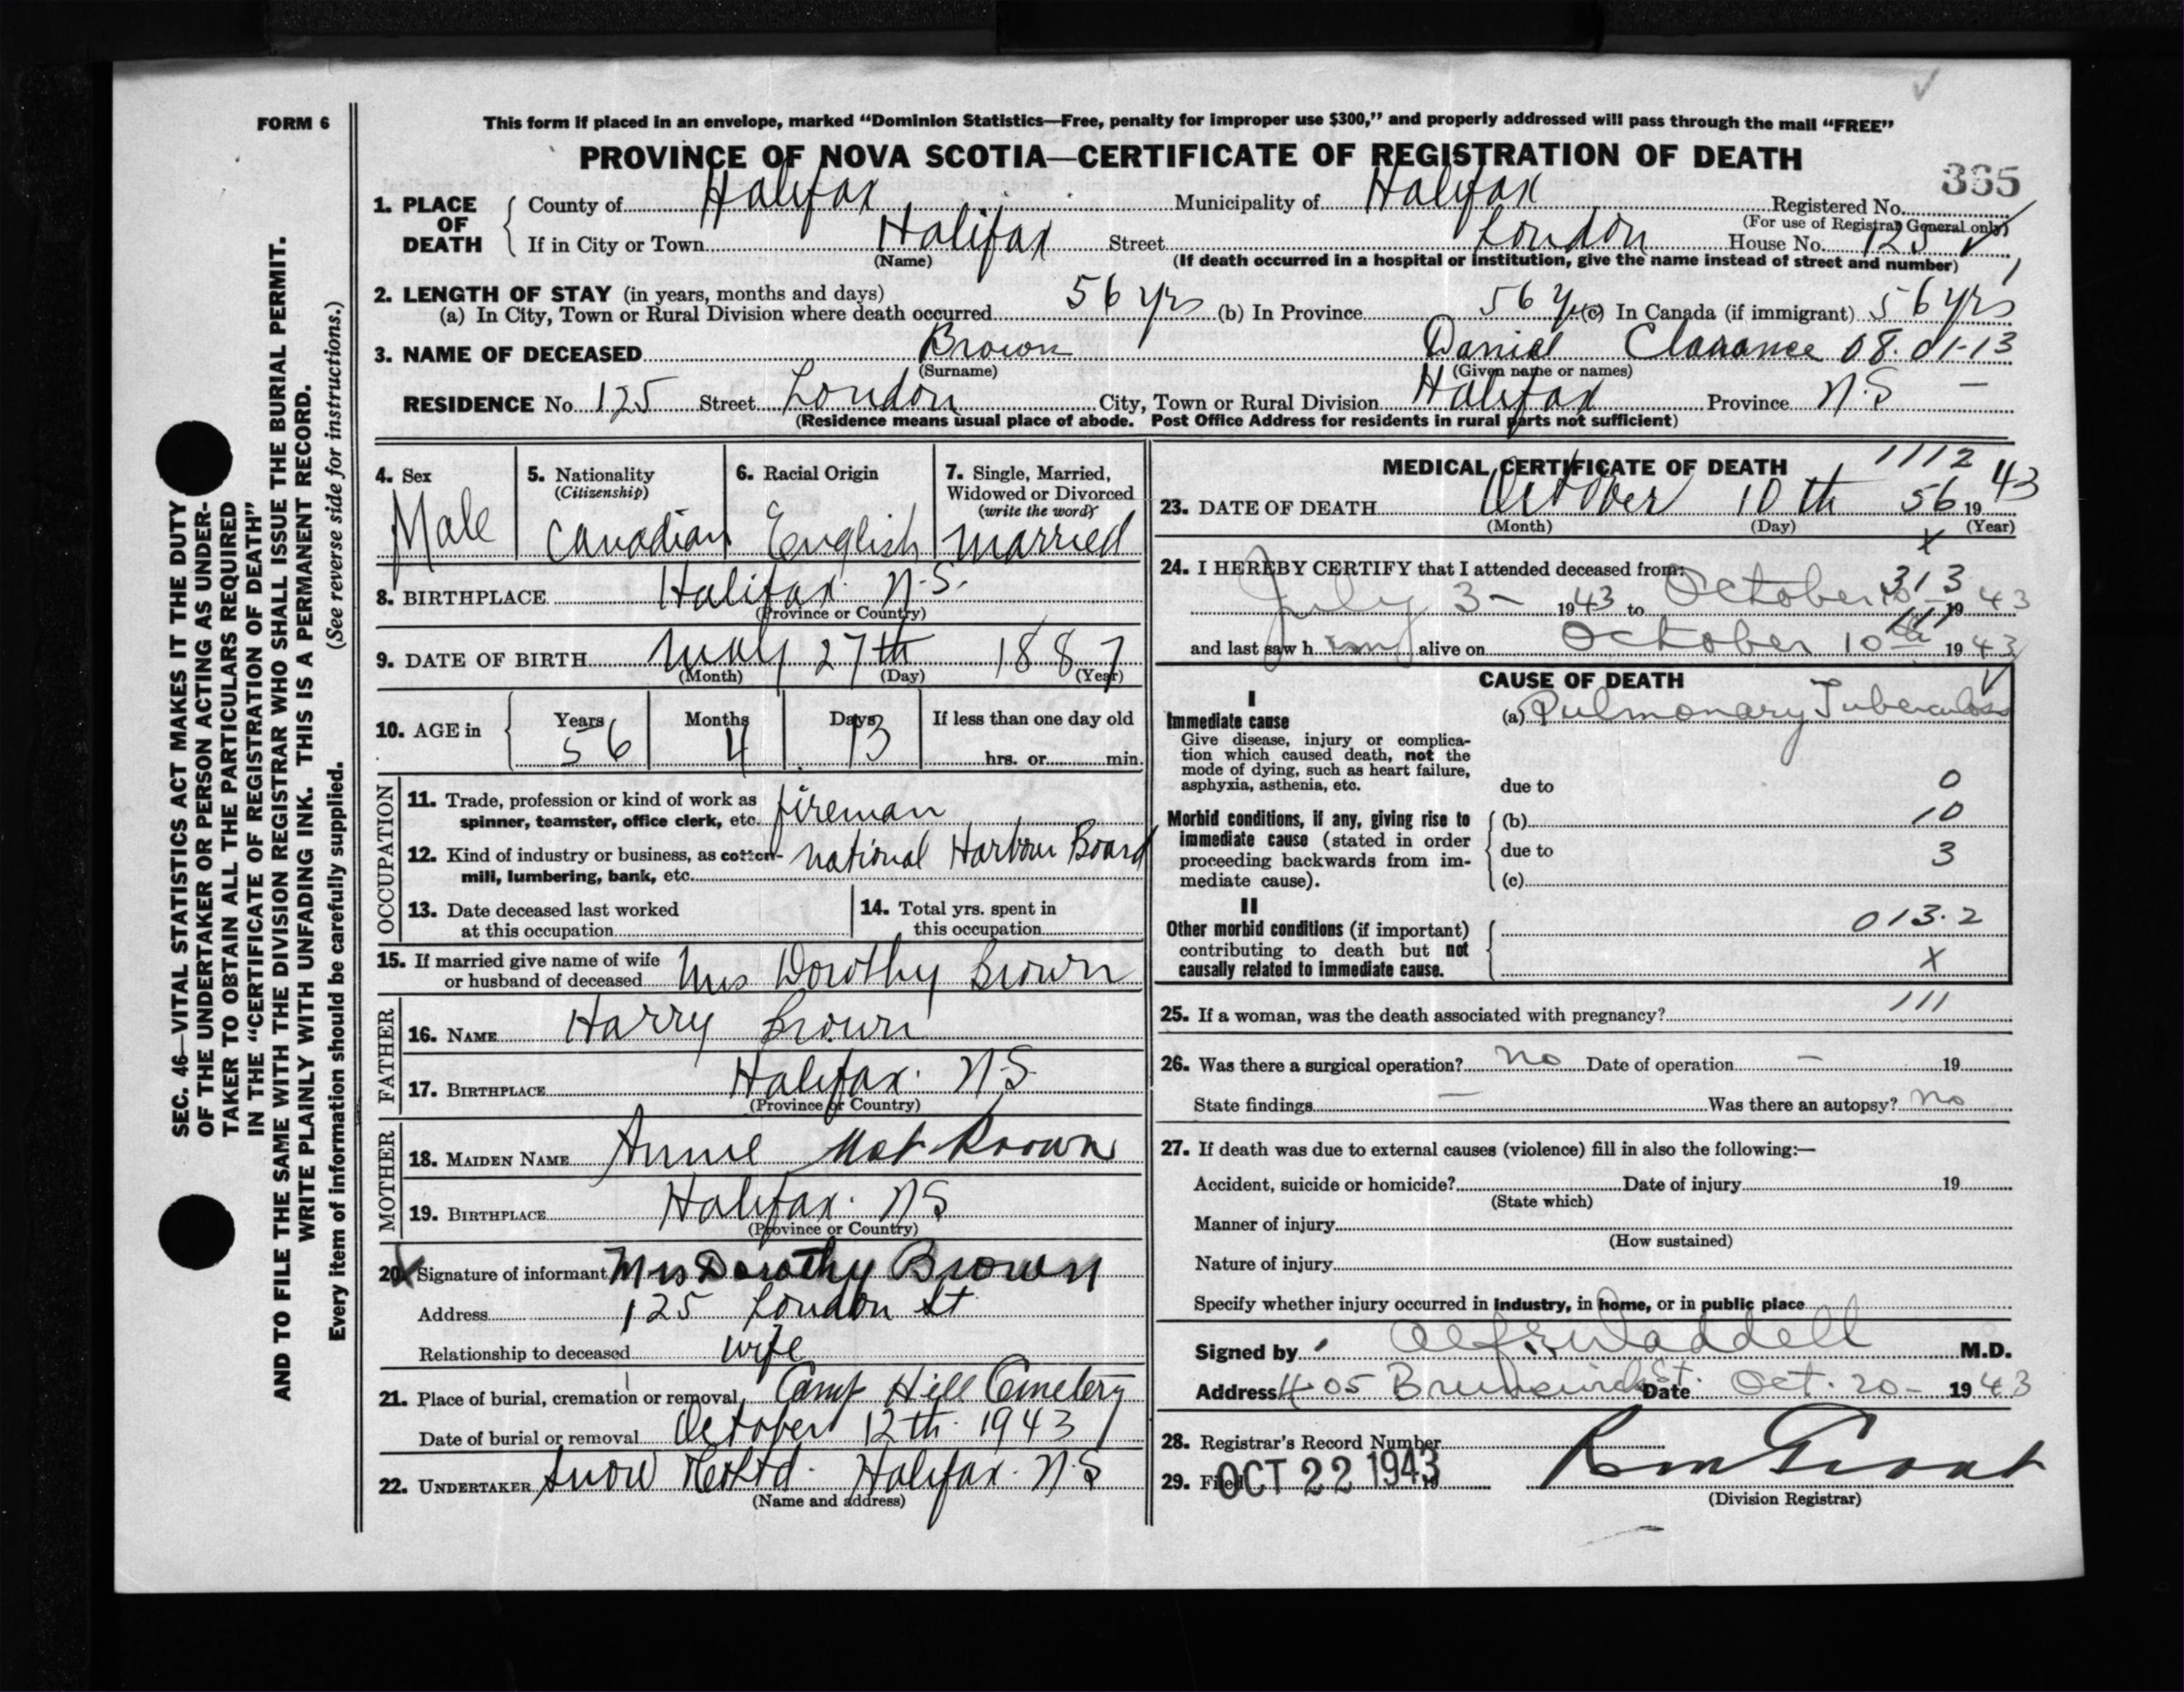 FORM 6
This form if placed in an envelope, marked "Dominion Statistics—Free, penalty for improper use $300," and properly addressed will pass through the mail "FREE"
PROVINCE OF NOVA SCOTIA—CERTIFICATE OF REGISTRATION OF DEATH
365
1. PLACE OF DEATH County of Halifax Municipality of Halifax Registered No.
(For use of Registrar General only)
If in City or Town Halifax Street London House No. 125
(Name) (If death occurred in a hospital or institution, give the name instead of street and number)
2. LENGTH OF STAY (in years, months and days)
(a) In City, Town or Rural Division where death occurred 56 yrs (b) In Province 56 yrs (c) In Canada (if immigrant) 56 yrs
3. NAME OF DECEASED Brown Daniel Clarance 08.01-13
(Surname) (Given name or names)
RESIDENCE No. 125 Street London City, Town or Rural Division Halifax Province N.S —
(Residence means usual place of abode. Post Office Address for residents in rural parts not sufficient)
4. Sex Male
5. Nationality (Citizenship) Canadian
6. Racial Origin English
7. Single, Married, Widowed or Divorced (write the word) married
8. BIRTHPLACE Halifax. N.S.
(Province or Country)
9. DATE OF BIRTH May 27th 1887
(Month) (Day) (Year)
10. AGE in Years 56 Months 4 Days 13 If less than one day old
hrs. or min.
OCCUPATION
11. Trade, profession or kind of work as spinner, teamster, office clerk, etc. fireman
12. Kind of industry or business, as cotton-mill, lumbering, bank, etc. National Harbour Board
13. Date deceased last worked at this occupation
14. Total yrs. spent in this occupation
15. If married give name of wife or husband of deceased Mrs Dorothy Brown
FATHER
16. NAME Harry Brown
17. BIRTHPLACE Halifax. N.S
(Province or Country)
MOTHER
18. MAIDEN NAME Annie Not Known
19. BIRTHPLACE Halifax. N S
(Province or Country)
20. Signature of informant Mrs Dorothy Brown
Address 125 London St
Relationship to deceased wife
21. Place of burial, cremation or removal Camp Hill Cemetery
Date of burial or removal October 12th 1943
22. UNDERTAKER Snow & Co Ltd. Halifax. N.S
(Name and address)
MEDICAL CERTIFICATE OF DEATH 1112
23. DATE OF DEATH October 10th 56 19 43
(Month) (Day) (Year)
X
24. I HEREBY CERTIFY that I attended deceased from: 313
July 3— 1943 to October 10 1943
111
and last saw him alive on October 10th 1943
CAUSE OF DEATH
I
Immediate cause (a) Pulmonary Tuberculosis
Give disease, injury or complication which caused death, not the mode of dying, such as heart failure, asphyxia, asthenia, etc.
due to 0
Morbid conditions, if any, giving rise to immediate cause (stated in order proceeding backwards from immediate cause).
(b) 10
due to 3
(c)
II
Other morbid conditions (if important) contributing to death but not causally related to immediate cause.
013.2
X
25. If a woman, was the death associated with pregnancy? 111
26. Was there a surgical operation? no Date of operation — 19
State findings — Was there an autopsy? no
27. If death was due to external causes (violence) fill in also the following:—
Accident, suicide or homicide? Date of injury 19
(State which)
Manner of injury
(How sustained)
Nature of injury
Specify whether injury occurred in industry, in home, or in public place
Signed by Alf. E. Waddell M.D.
Address 405 Brunswick St. Date Oct. 20— 1943
28. Registrar's Record Number
29. Filed OCT 22 1943 19
(Division Registrar)
SEC. 46—VITAL STATISTICS ACT MAKES IT THE DUTY
OF THE UNDERTAKER OR PERSON ACTING AS UNDER-
TAKER TO OBTAIN ALL THE PARTICULARS REQUIRED
IN THE "CERTIFICATE OF REGISTRATION OF DEATH"
AND TO FILE THE SAME WITH THE DIVISION REGISTRAR WHO SHALL ISSUE THE BURIAL PERMIT.
WRITE PLAINLY WITH UNFADING INK. THIS IS A PERMANENT RECORD.
Every item of information should be carefully supplied. (See reverse side for instructions.)